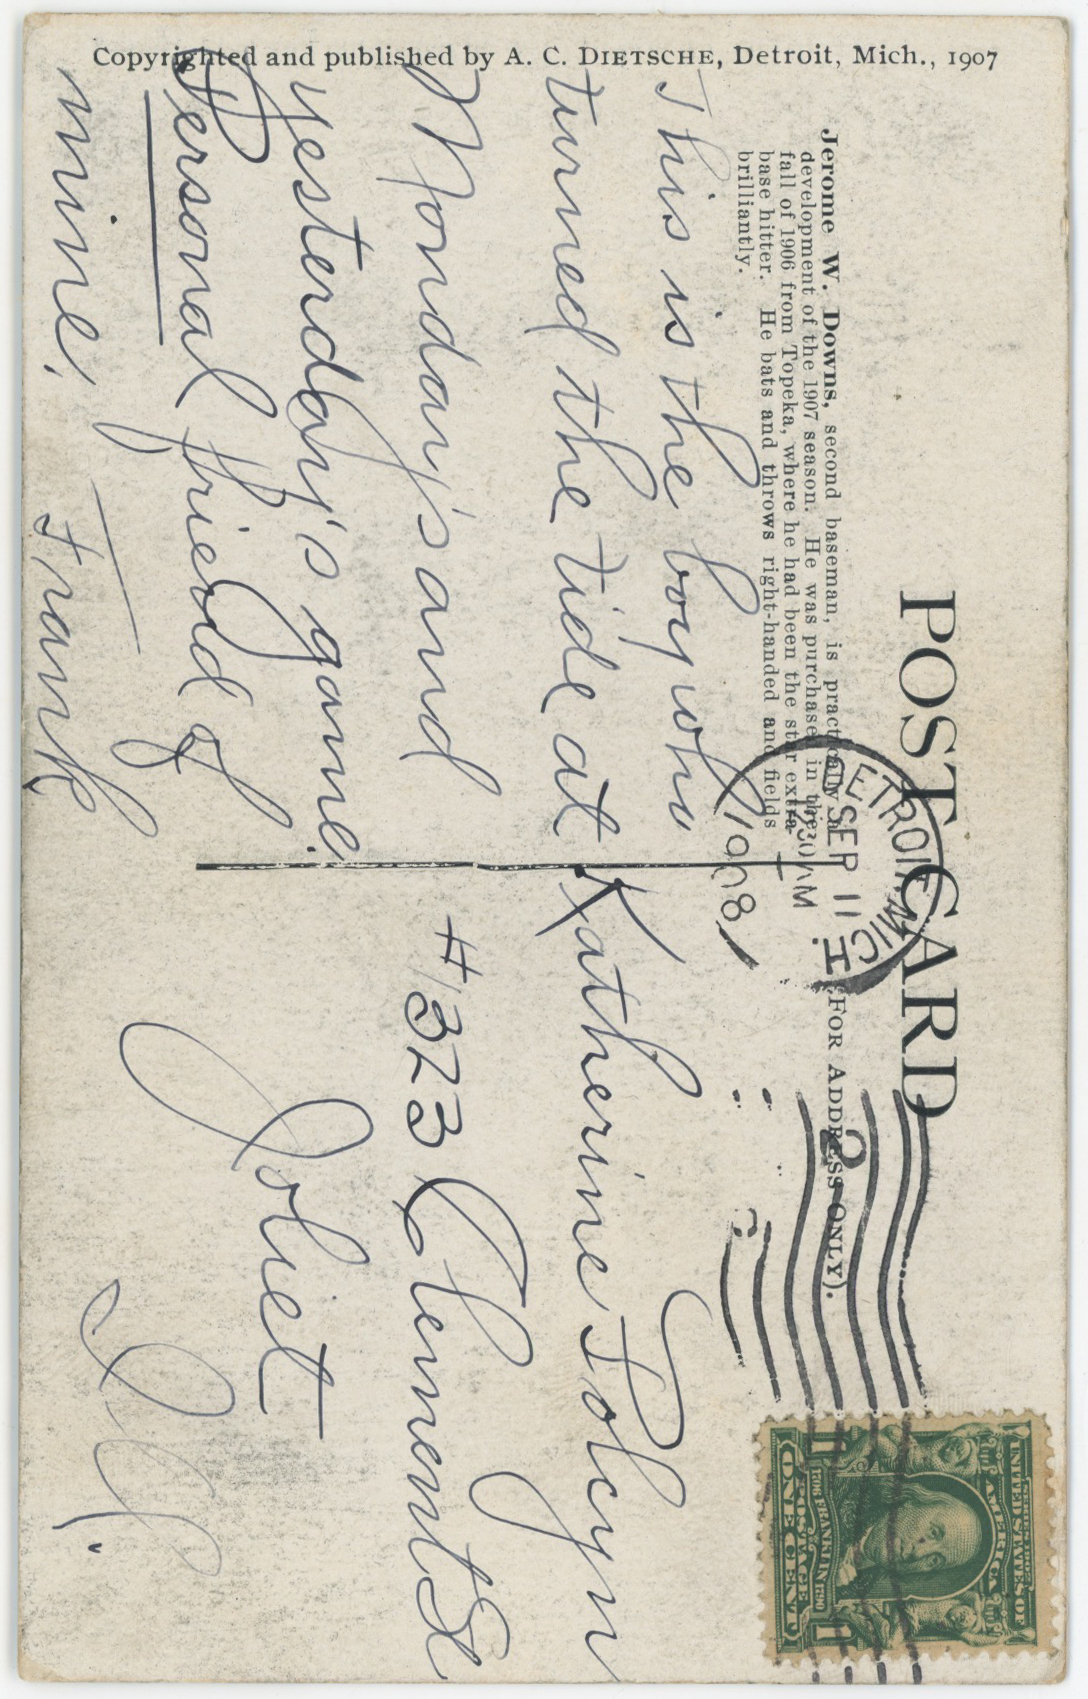 Copyrighted and published by A. C. DIETSCHE, Detroit, Mich., 1907
POST CARD
(FOR ADDRESS ONLY).
Jerome W. Downs, second baseman, is practically a
development of the 1907 season. He was purchased in the
fall of 1906 from Topeka, where he had been the star extra-
base hitter. He bats and throws right-handed and fields
brilliantly.
DETROIT, MICH.
SEP 11
1230 AM
1908
2
This is the boy who
turned the tide at
Monday's and
yesterday's game.
Personal friend of
mine.
Frank
Katherine Folcyn
#323 Clement St
Joliet
Ill.
SERIES 1902
UNITED STATES OF
AMERICA
1706 FRANKLIN 1790
POSTAGE
ONE CENT
1 1